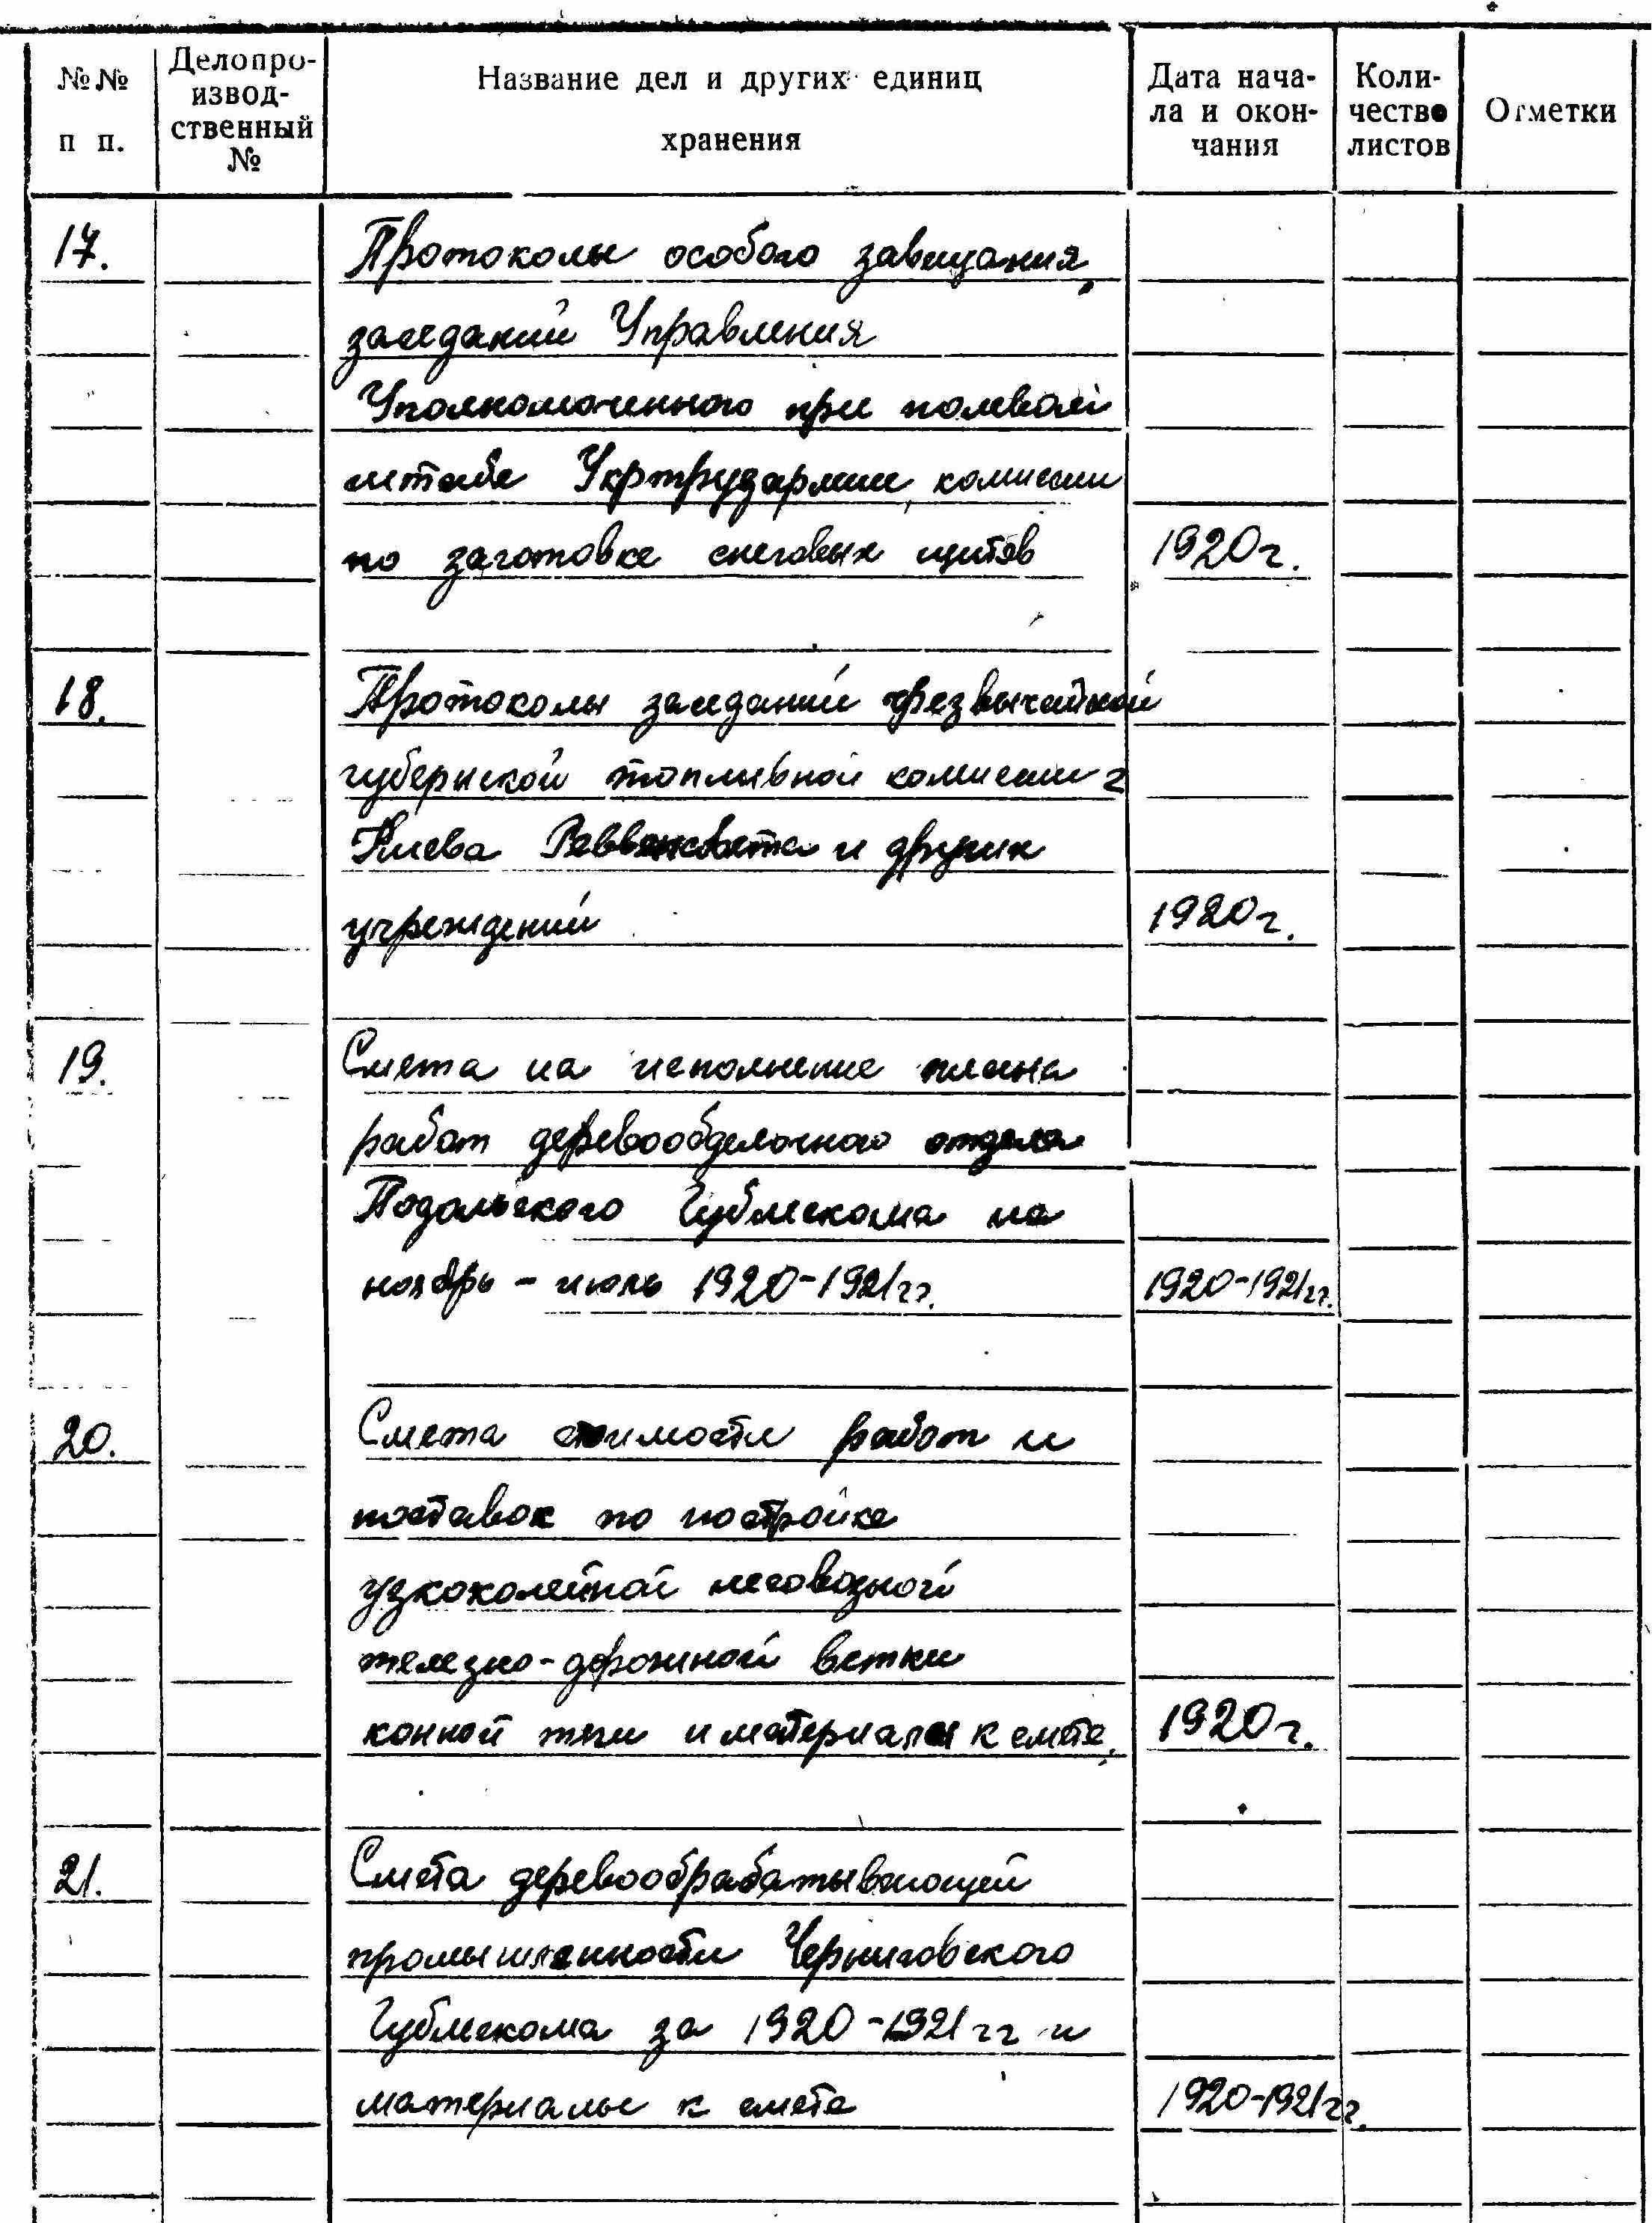 №№ п п.
Делопроизводственный №
Название дел и других единиц хранения
Дата начала и окончания
Количество листов
Отметки
17.
Протоколы особого завещания,
заседаний Управления
Уполномоченного при полевом
штабе Укртрудармии, комиссии
по заготовке снеговых щитов 1920г.
18. Протоколы заседаний чрезвычайной
губернской топливной комиссии г
Киева Реввоенсовета и других
учреждений 1920г.
19. Смета на исполнение плана
работ деревообделочного отдела
Подольского Гублескома на
ноябрь - июль 1920-1921гг. 1920-1921гг.
20. Смета стоимости работ и
поставок по постройке
узкоколейной лесовозной
железно-дорожной ветки
конной тяги и материалы к смете. 1920г.
21. Смета деревообрабатывающей
промышленности Черниговского
Гублескома за 1920-1921гг и
материалы к смете 1920-1921гг.